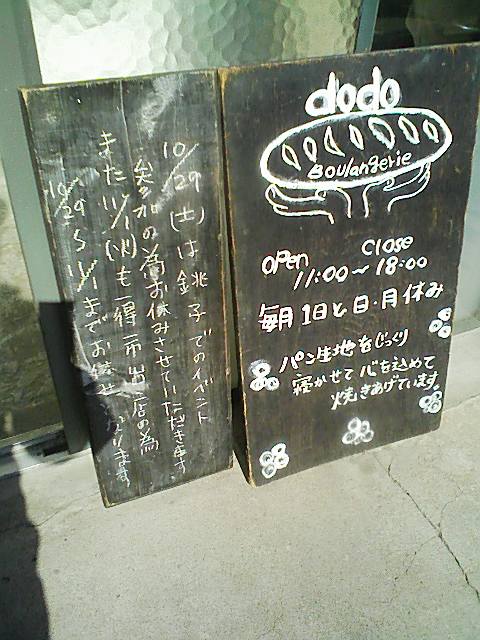 dodo
Boulangerie
open close
11:00~18:00
毎月1日と日・月休み
パン生地をじっくり
寝かせて心を込めて
焼きあげています。
10/29(土)は銚子でのイベント
参加の為お休みさせていただきます。
また11/1(火)も一得市出店の為
10/29~11/1までお休みとなります